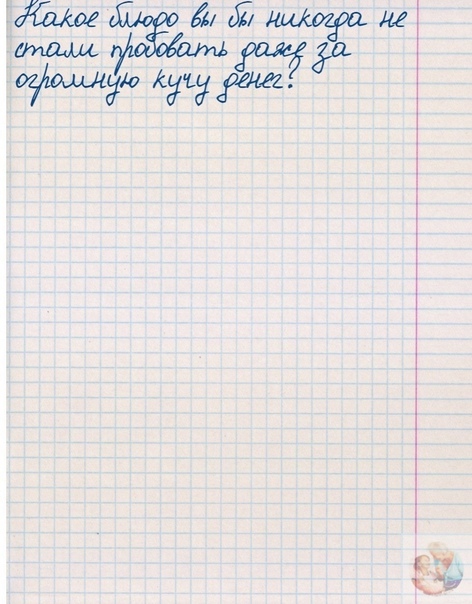 Какое блюдо вы бы никогда не
стали пробовать даже за
огромную кучу денег?